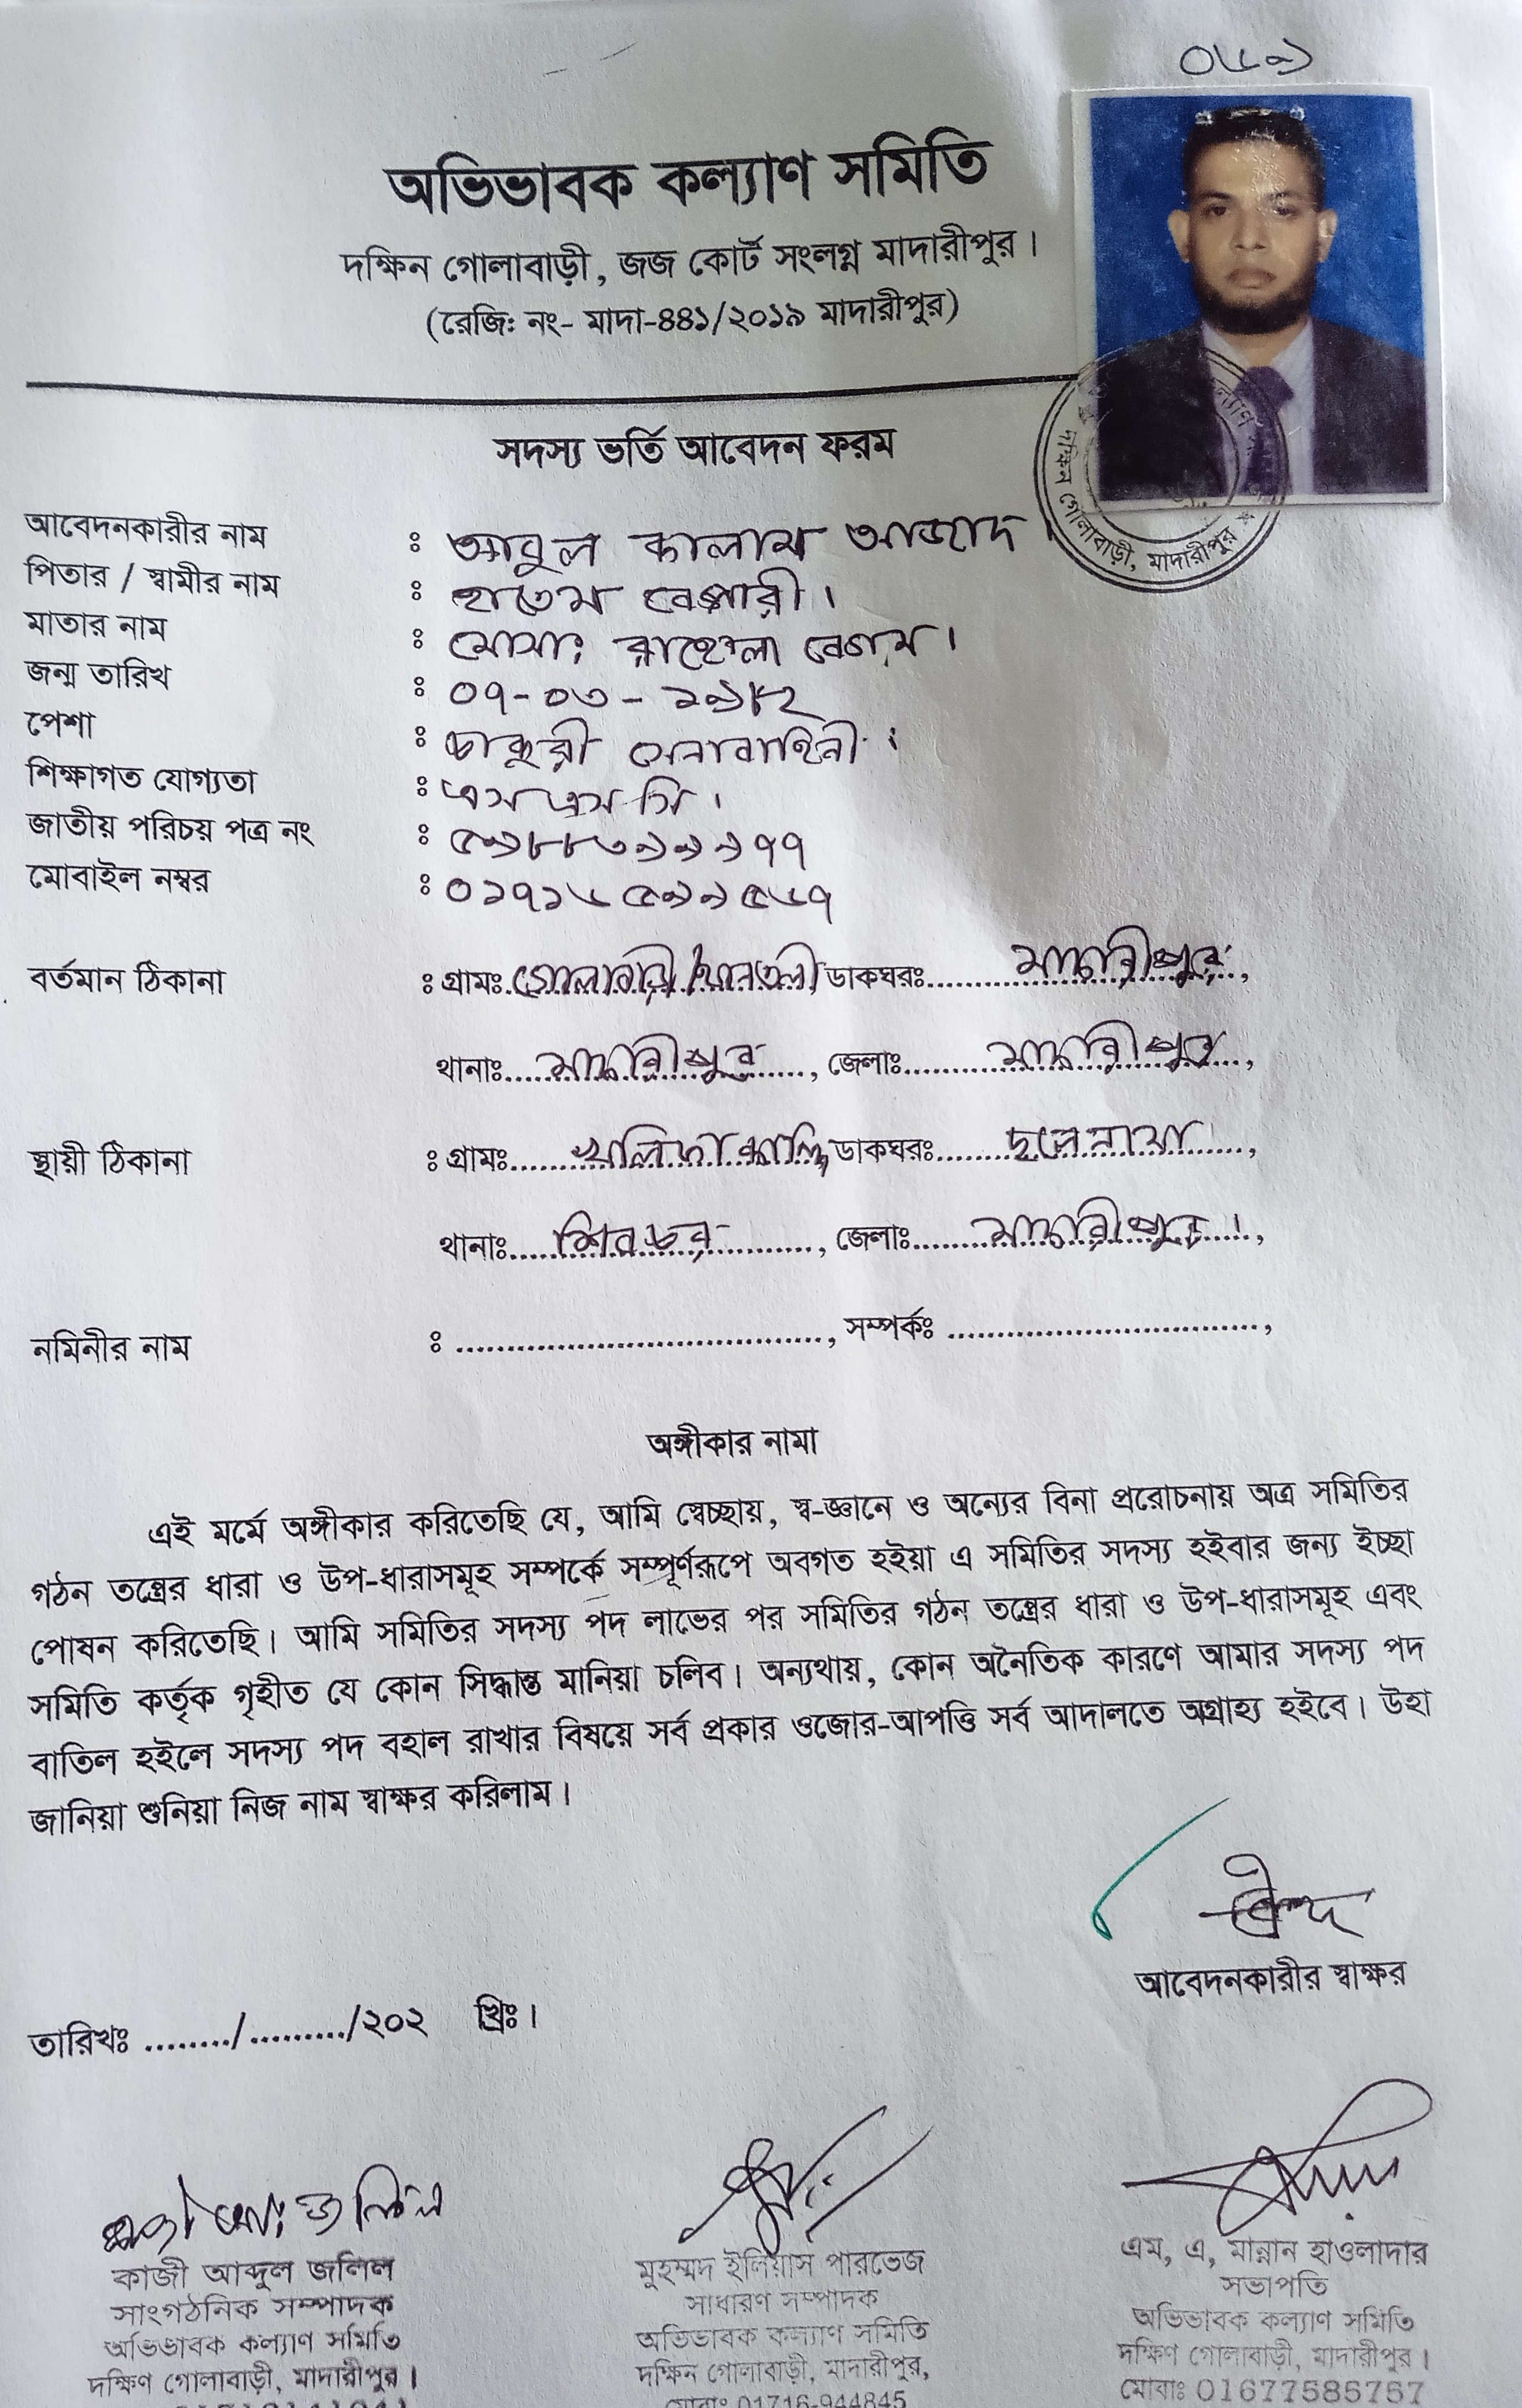 ০৬৯১
অভিভাবক কল্যাণ সমিতি
দক্ষিন গোলাবাড়ী, জজ কোর্ট সংলগ্ন মাদারীপুর।
(রেজি: নং- মাদা-৪৪১/২০১৯ মাদারীপুর)
সদস্য ভর্তি আবেদন ফরম
আবেদনকারীর নাম : আবুল কালাম আজাদ
পিতার / স্বামীর নাম : হাতেম বেপারী।
মাতার নাম : মোসাঃ রাহেলা বেগম।
জন্ম তারিখ : ০৭-০৩-১৯৮২
পেশা : চাকুরী সেনাবাহিনী।
শিক্ষাগত যোগ্যতা : এস এস সি।
জাতীয় পরিচয় পত্র নং : ৫৯৮৮৩৯৯৯৭৭
মোবাইল নম্বর : ০১৭১৬৫৯৯৫৬৭
বর্তমান ঠিকানা : গ্রামঃ গোলাবাড়ী ডাকঘরঃ মাদারীপুর,
থানাঃ মাদারীপুর, জেলাঃ মাদারীপুর,
স্থায়ী ঠিকানা : গ্রামঃ ডাকঘরঃ
থানাঃ শিবচর, জেলাঃ মাদারীপুর।,
নমিনীর নাম : ......................................, সম্পর্কঃ ................................,
অঙ্গীকার নামা
এই মর্মে অঙ্গীকার করিতেছি যে, আমি স্বেচ্ছায়, স্ব-জ্ঞানে ও অন্যের বিনা প্ররোচনায় অত্র সমিতির
গঠন তন্ত্রের ধারা ও উপ-ধারাসমূহ সম্পর্কে সম্পূর্ণরূপে অবগত হইয়া এ সমিতির সদস্য হইবার জন্য ইচ্ছা
পোষন করিতেছি। আমি সমিতির সদস্য পদ লাভের পর সমিতির গঠন তন্ত্রের ধারা ও উপ-ধারাসমূহ এবং
সমিতি কর্তৃক গৃহীত যে কোন সিদ্ধান্ত মানিয়া চলিব। অন্যথায়, কোন অনৈতিক কারণে আমার সদস্য পদ
বাতিল হইলে সদস্য পদ বহাল রাখার বিষয়ে সর্ব প্রকার ওজোর-আপত্তি সর্ব আদালতে অগ্রাহ্য হইবে। উহা
জানিয়া শুনিয়া নিজ নাম স্বাক্ষর করিলাম।
আবেদনকারীর স্বাক্ষর
তারিখঃ ........./........../২০২ খ্রিঃ।
কাজী আব্দুল জলিল
সাংগঠনিক সম্পাদক
অভিভাবক কল্যাণ সমিতি
দক্ষিণ গোলাবাড়ী, মাদারীপুর।
মুহম্মদ ইলিয়াস পারভেজ
সাধারণ সম্পাদক
অভিভাবক কল্যাণ সমিতি
দক্ষিন গোলাবাড়ী, মাদারীপুর,
মোবাঃ 01716-944845
এম, এ, মান্নান হাওলাদার
সভাপতি
অভিভাবক কল্যাণ সমিতি
দক্ষিণ গোলাবাড়ী, মাদারীপুর।
মোবাঃ 01677585767